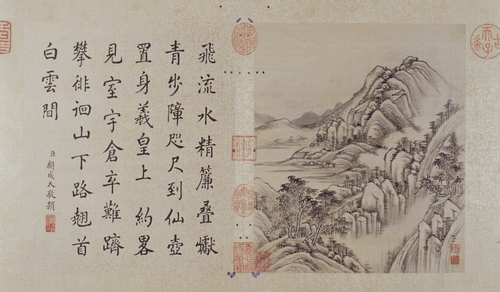 飛流水精簾疊巘
青步障咫尺到仙壺
置身羲皇上約畧
見室宇倉卒難躋
攀徘徊山下路翹首
白雲間
臣顧成天敬題